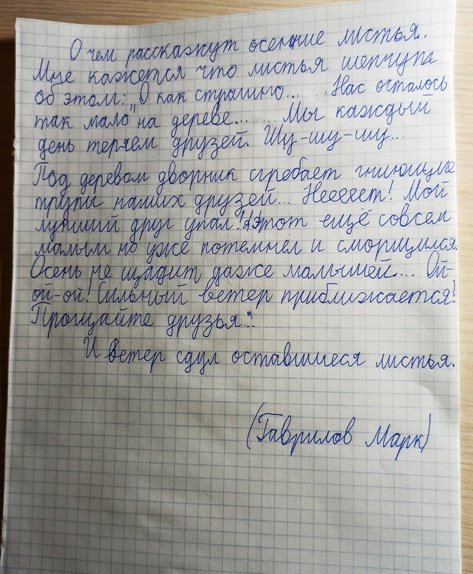 О чем расскажут осенние листья.
Мне кажется что листья шепчут
об этом: "О как страшно... Нас осталось
так мало на дереве... Мы каждый
день теряем друзей. Шу-шу-шу...
Под деревом дворник сгребает гниющие
трупы наших друзей... Неееет! Мой
лучший друг упал! А этот ещё совсем
малым но уже потемнел и сморщился.
Осень не щадит даже малышей... Ой-
ой-ой! Сильный ветер приближается!
Прощайте друзья..."
И ветер сдул оставшиеся листья.
(Гаврилов Марк)